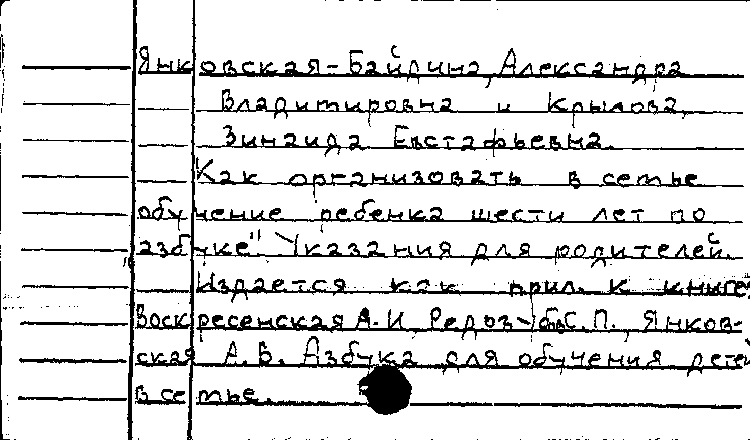 Янковская-Байдина, Александра
Владимировна и Крылова,
Зинаида Евстафьевна.
Как организовать в семье
обучение ребенка шести лет по
"азбуке". Указания для родителей.
Издается как прил. к книге
Воскресенская А.И, Редозубов С.П., Янков-
ская А.В. Азбука для обучения детей
в семье.